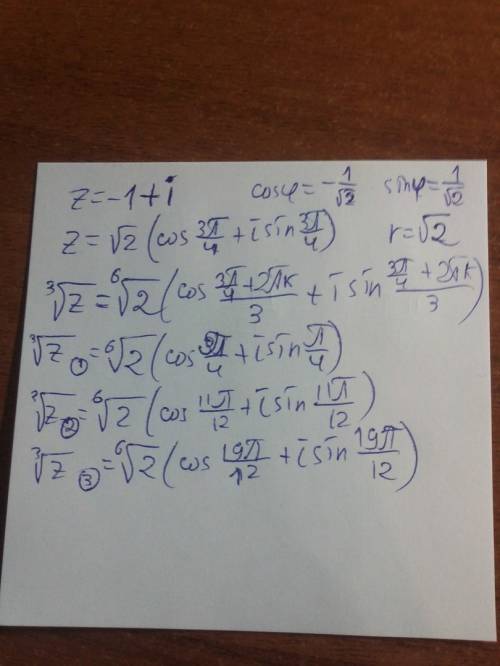 z = -1 + i    cosφ = -1/√2    sinφ = 1/√2
z = √2 (cos 3π/4 + i sin 3π/4)    r = √2
³√z = ⁶√2 (cos (3π/4 + 2πk)/3 + i sin (3π/4 + 2πk)/3)
³√z ① = ⁶√2 (cos π/4 + i sin π/4)
³√z ② = ⁶√2 (cos 11π/12 + i sin 11π/12)
³√z ③ = ⁶√2 (cos 19π/12 + i sin 19π/12)